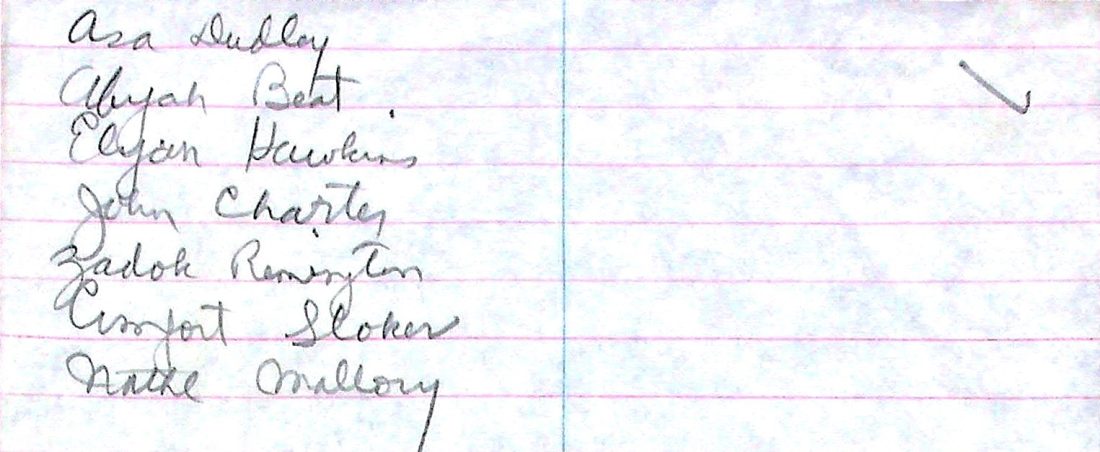 Asa Dudley
Abijah Beat
Elijah Hawkins
John Charter
Zadok Remington
Comfort Sloker
Nathl Mallory